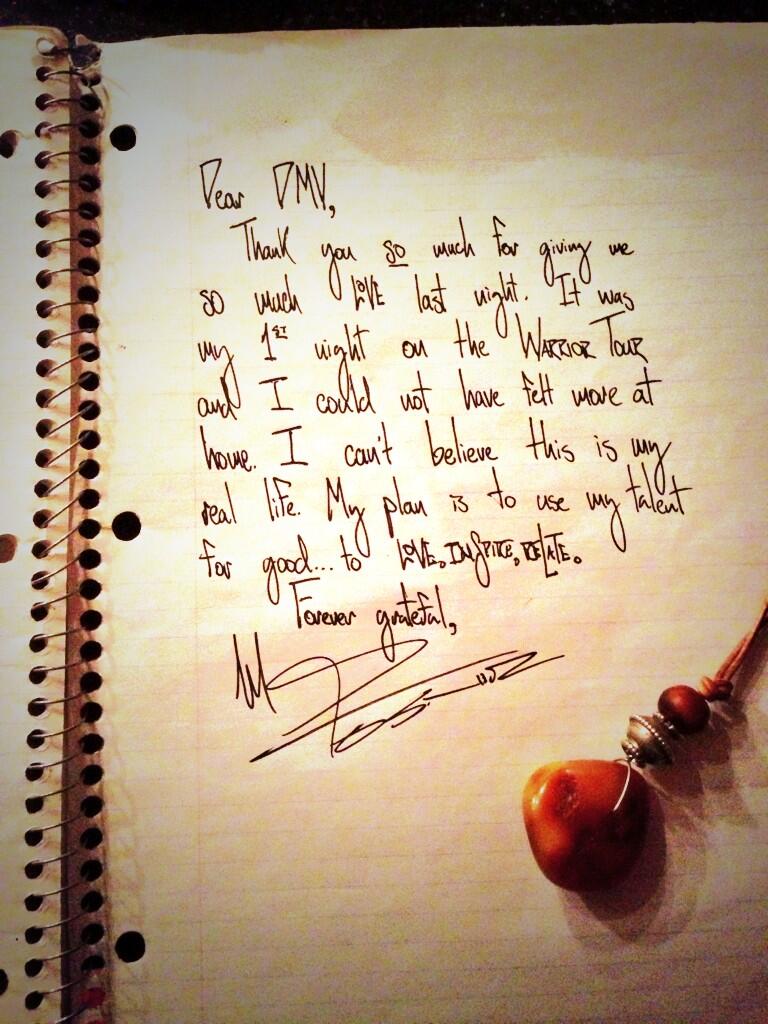 Dear DMV,
Thank you so much for giving me
so much LOVE last night. It was
my 1ST night on the WARRIOR TOUR
and I could not have felt more at
home. I can't believe this is my
real life. My plan is to use my talent
for good... to LOVE. INSPIRE. RELATE.
Forever grateful,